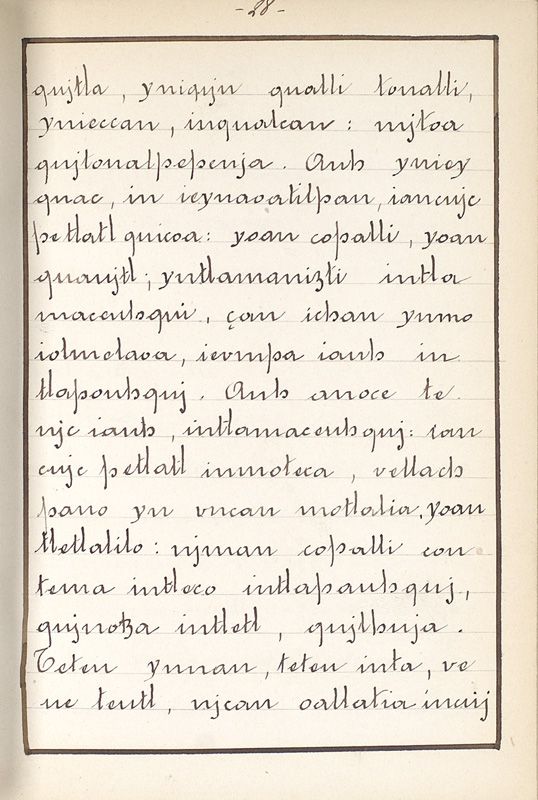 -28-
qujtla, yniqujn qualli tonalli,
ynieccan, inqualcan: mjtoa
qujtonalpepenja. Auh yniey
quac, in ieynaoatilpan, iancujc
petlatl quicoa: yoan copalli, yoan
quaujtl; yntlamanizti intla
maceuhqui, çan ichan ynmo
iolmelaoa, ievmpa iauh in
tlapouhquj. Auh anoce te
njc iauh, intlamaceuhquj: ian
cujc petlatl inmoteca, vellach
pano yn vncan motlalia, yoan
tletlalilo: njman copalli con
tema intleco intlapauhquj,
qujnotza intletl, qujlhuja.
Teteu ynnan, teteu inta, ve
ue teutl, njcan oallatia incuij